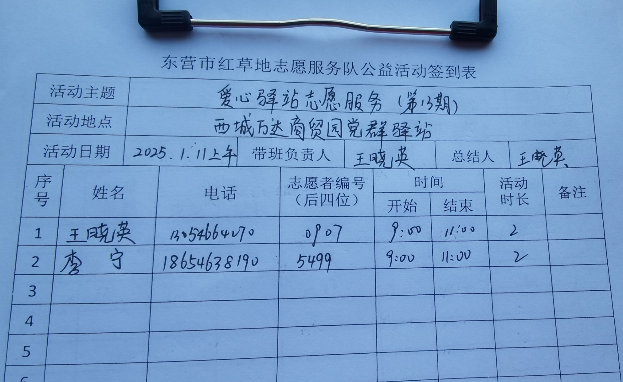 东营市红草地志愿服务队公益活动签到表
活动主题 爱心驿站志愿服务（第13期）
活动地点 西城万达商贸园党群驿站
活动日期 2025.1.11上午 带班负责人 王晓英 总结人 王晓英
序号 姓名 电话 志愿者编号（后四位） 时间 开始 结束 活动时长 备注
1 王晓英 0907 9:00 11:00 2
2 李宁 18654638190 5499 9:00 11:00 2
3
4
5